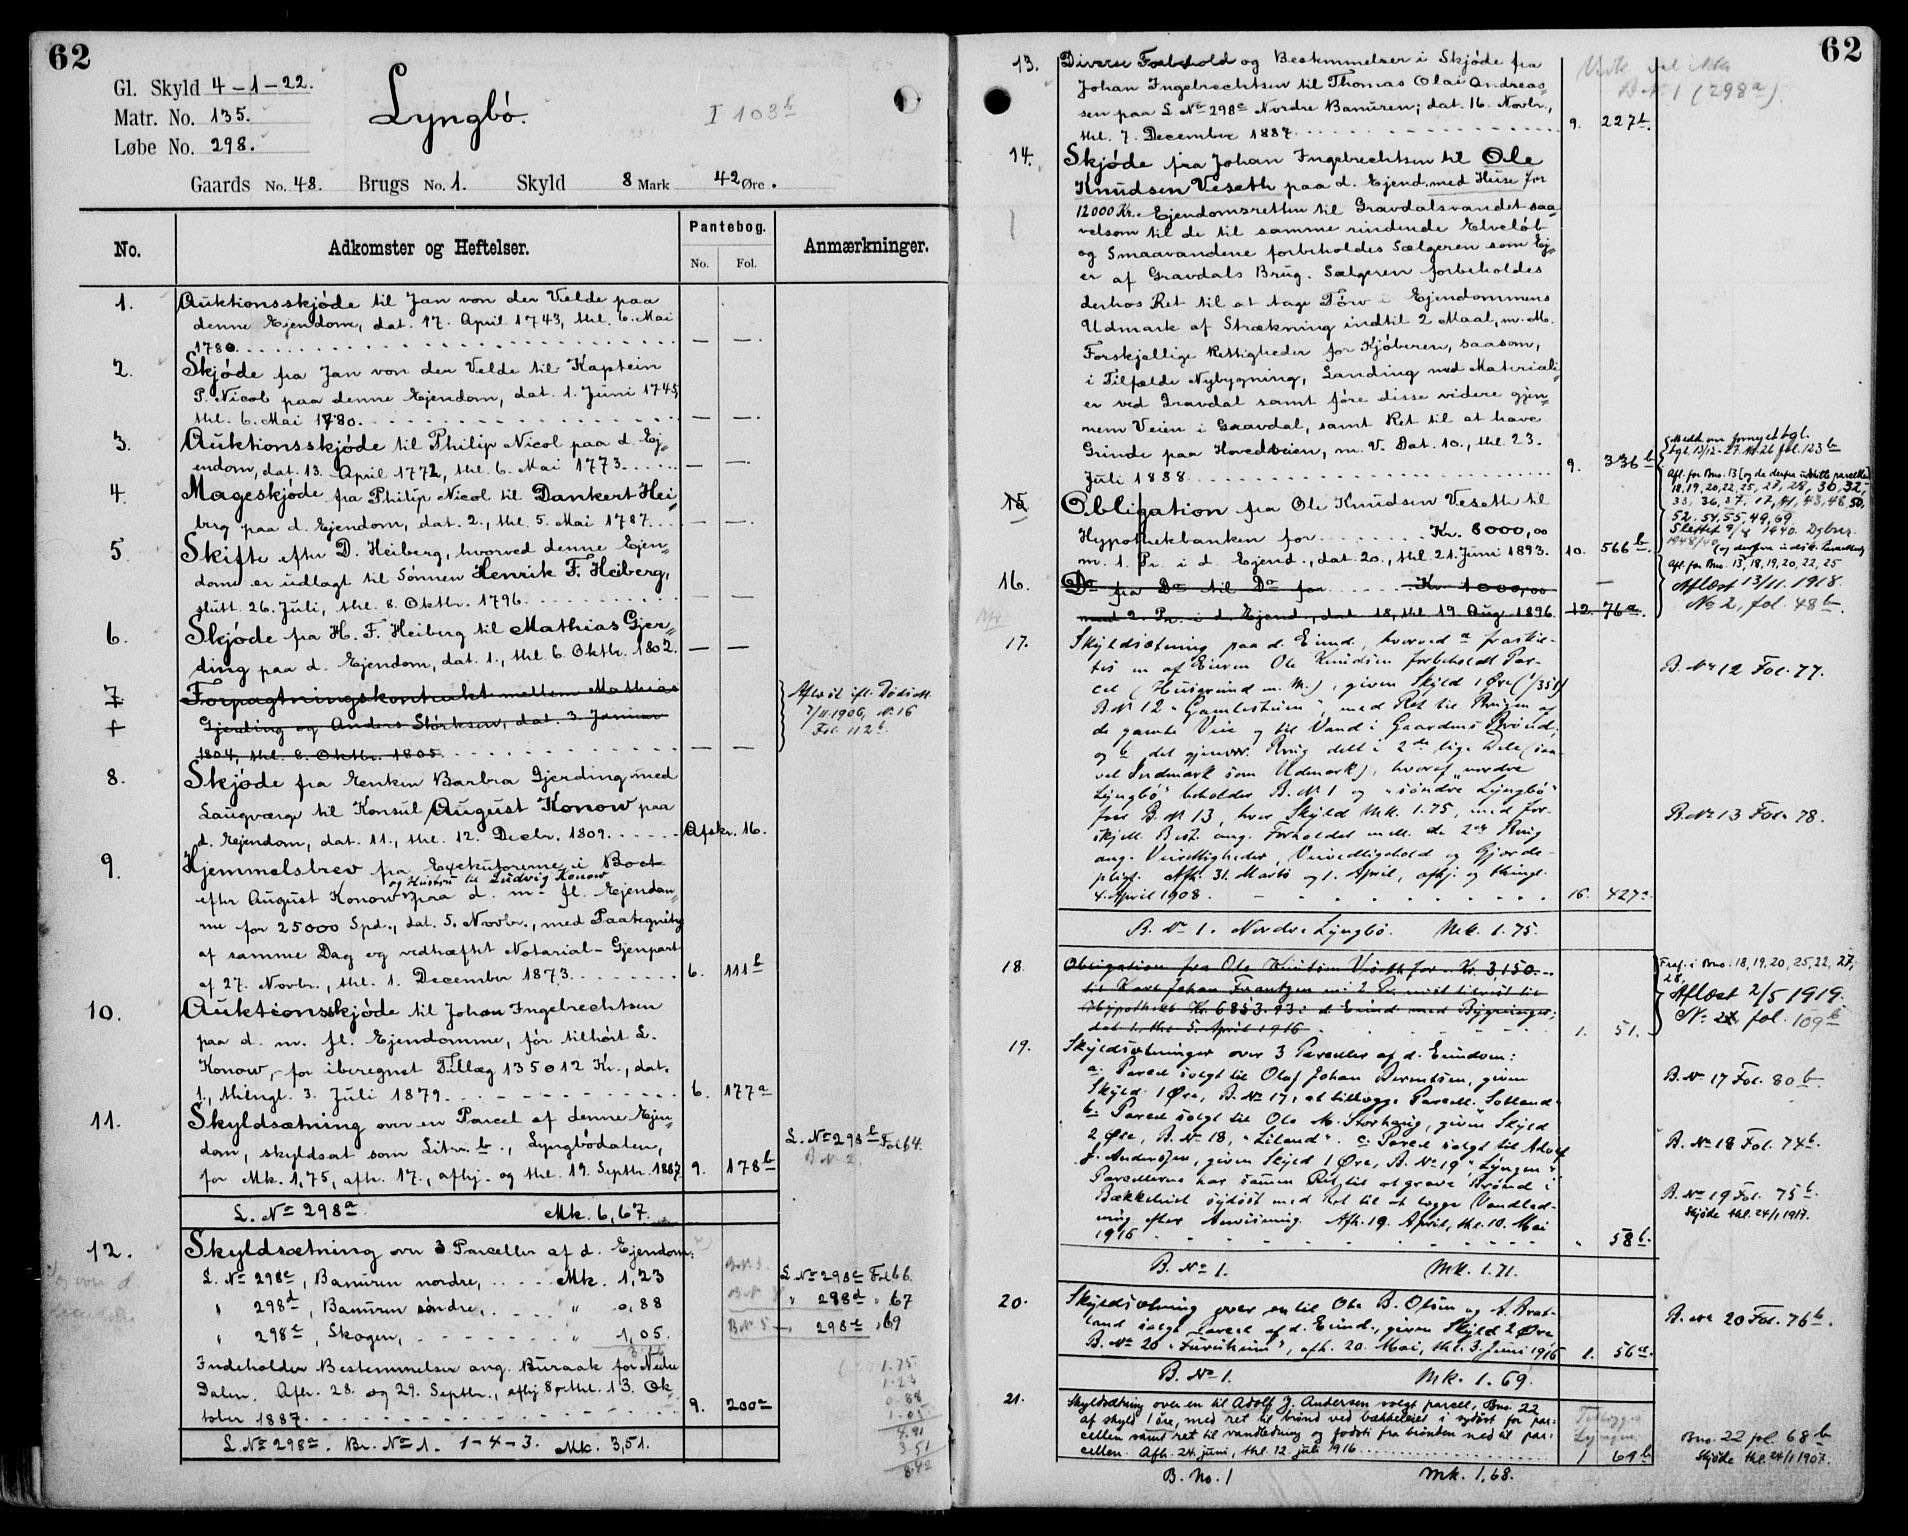 62
Gl. Skyld 4-1-22.
Matr. No. 135.
Løbe No. 298.
Lyngbö.
I 103b
Gaards No. 48. Brugs No. 1. Skyld 8 Mark 42 Øre.
No. Adkomster og Heftelser. Pantebog. No. Fol. Anmærkninger.
1. Auktionsskjöde til Jan von der Velde paa
denne Ejendom, dat. 17. April 1743, thl. 6. Mai
1780.
2. Skjöde fra Jan von der Velde til Kaptein
P. Nicol paa denne Ejendom, dat. 1. Juni 1745,
thl. 6. Mai 1780.
3. Auktionsskjöde til Philip Nicol paa d. Ej„
endom, dat. 13. April 1772, thl. 6. Mai 1773.
4. Mageskjöde fra Philip Nicol til Dankert Hei„
berg paa d. Ejendom, dat. 2., thl. 5. Mai 1787.
5. Skifte efter D. Heiberg, hvorved denne Ejen„
dom er udlagt til Sönnen Henrik F. Heiberg,
slutt. 26. Juli, thl. 8. Oktbr. 1796.
6. Skjöde fra H. F. Heiberg til Mathias Gjer„
ding paa d. Ejendom, dat. 1., thl. 6. Oktbr. 1802.
7. Forpagtningskontrakt mellem Mathias
Gjerding og Anders Störksen, dat. 3. Januar
1804, thl. 8. Oktbr. 1805.
Aflæst ifl. Dödsatt.
7/11 1906, N. 16
Fol. 112b.
8. Skjöde fra Enken Barbra Gjerding med
Laugværge til Konsul August Konow paa
d. Ejendom, dat. 11., thl. 12. Decbr. 1809. Afskr. 16.
9. Hjemmelsbrev fra Exekutorerne i Boet
og Hustru til Ludvig Konow
efter August Konow paa d. m. fl. Ejendom„
me for 25000 Spd., dat. 5. Novbr., med Paategning
af samme Dag og vedhæftet Notarial-Gjenpart
af 27. Novbr., thl. 1. December 1873. 6. 111b
10. Auktionsskjöde til Johan Ingebrechtsen
paa d. m. fl. Ejendomme, för tilhört L.
Konow, for iberegnet Tillæg 135012 Kr., dat.
1., thlngl. 3. Juli 1879. 6. 177a
11. Skyldsætning over en Parcel af denne Ejen„
dom, skyldsat som Litr. b., Lyngbödalen,
for Mk. 1,75, afh. 17., afhj. og thl. 19. Septbr. 1887. 9. 178b
L. No 298b Fol 64.
B No 2.
L. No 298a Mk. 6,67.
12. Skyldsætning over 3 Parceller af d. Ejendom:
L. No 298c, Banuren nordre, Mk. 1,23 L. No 298c Fol 66.
" 298d, Banuren söndre, " 0,88 " 298d " 67
" 298e, Skogen, " 1,05. BNo 5 298e " 69
Indeholder Bestemmelser ang. Buraak for Nedre
Dalen. Afh. 28. og 29. Septbr., afhj. 8, thl. 13. Ok„
tober 1887. 9. 200a
1.75
1.23
0.88
1.05
4.91
3.51
8.42
L. No 298a. Br. No 1. 1-4-3. Mk. 3,51.
62
13. Diverse Forbehold og Bestemmelser i Skjöde fra
Johan Ingebrechtsen til Thomas Olai Andreas„
sen paa L No 298c Nordre Banuren; dat. 16. Novbr.,
thl. 7. December 1887. 9. 227b.
B No 1 (298a).
14. Skjöde fra Johan Ingebrechtsen til Ole
Knudsen Veseth paa d. Ejend. med Huse for
12000 Kr. Ejendomsretten til Gravdalsvandet saa„
velsom til de til samme rindende Elvelöb
og Smaavandene forbeholdes Sælgeren som Ej„
er af Gravdals Brug. Sælgeren forbeholdes
derhos Ret til at tage Törv i Ejendommens
Udmark af Strækning indtil 2 Maal, m. M.
Forskjellige Rettigheder for Kjöberen, saasom,
i Tilfælde Nybygning, Landing med Materiali„
er ved Gravdal samt före disse videre gjen„
nem Veien i Gravdal, samt Ret til at have
Grinde paa Hovedveien, m. V. Dat. 10., thl. 23.
Juli 1888. 9. 336b
15. Obligation fra Ole Knudsen Veseth til
Hypothekbanken for Kr. 8000,00
m. 1. Pr. i d. Ejend., dat. 20., thl. 21. Juni 1893. 10. 566b.
18, 19, 20, 22, 25, 27, 28, 30, 32,
33, 36, 37, 17, 41, 43, 48, 50,
52. 54, 55, 49, 69
Slettet 9/8 1940. Dgbnr.
Afl. for Bno. 13, 18, 19, 20, 22, 25
16. Do fra Do til Do for Kr. 1000,00
med 2. Pr. i d. Ejend., dat. 18., thl. 19. Aug. 1896. 12. 76a.
Aflæst 13/11. 1918.
No 2, fol. 48b.
17. Skyldsætning paa d. Eiend., hvorved a fraskil-
tes en af Eieren Ole Knudsen forbeholdt Par-
cel (Husgrund m. M.), given Skyld 1 Øre (1/351)
B No 12 "Gamlestuen", med Ret til Brugen af
de gamle Veie og til Vand i Gaardens Brönd;
og b det gjenvær. Brug delt i 2de lige Dele (saa-
vel Indmark som Udmark), hvoraf "nordre
Lyngbö" beholder B. No 1 og "söndre Lyngbö"
faar B No 13, hver Skyld Mk. 1.75, med for-
skjell. Best. ang. Forholdet mell. de 2de Brug
ang. Veirettigheder, Veivedligehold og Gjerde-
pligt. Afh. 31. Marts og 1. April, afhj. og thingl.
4. April 1908. 16. 427a.
B. No 12 Fol. 77.
B. No 13 Fol. 78.
B. No 1. Nordre Lyngbö. Mk. 1.75.
18. Obligation fra Ole Knudsen Veseth for Kr. 3150.
til Karl Johan Frantzen m. 2 Pr. næst
Hypothek. Kr. 6853.93 i d. Eiend. med Bygninger;
dat. 1. thl. 5. April 1916 1. 51.
Fraf. i Bno. 18, 19, 20, 25, 22, 27,
28,
Aflæst 2/5 1919.
No 2, fol. 109b
19. Skyldsætninger over 3 Parceller af d. Eiendom:
a. Parcel solgt til Olaf Johan Berentsen, given
Skyld 1 Øre, B. No 17, at tillægge Parcell. Solland.
b. Parcel solgt til Ole M. Storhaug, given Skyld
2 Øre, B. No 18, "Liland". c. Parcel solgt til Adolf
J. Anderssen, given Skyld 1 Øre, B. No 19 "Lyngen".
Parcellerne har sammen Ret til at grave Brönd i
Bækkeleiet sydöst med Ret til at lægge Vandled-
ning efter Anvisning. Afh. 19. April, thl. 10. Mai
1916 " 58b.
B. No 17 Fol. 80b.
B. No 18 Fol. 74b.
B. No 19 Fol. 75b.
Skjöde thl. 24/1 1917.
B. No 1. Mk. 1.71.
20. Skyldsætning over en til Ole B. Olsen og A. Brat-
land solgt Parcel af d. Eiend., given Skyld 2 Øre
B. No 20 "Furuheim", afh. 20. Mai, thl. 3. Juni 1916 1. 56a.
B. No 20 Fol. 76b.
B. No 1. Mk. 1.69.
21. Skyldsætning over en til Adolf J. Andersen solgt parcel, Bno. 22
af skyld 1 öre, med ret til brönd ved bækkeleiet i sydöst for par-
cellen samt ret til vandledning og fodsti fra brönden ned til par-
cellen. Afh. 24. juni, thl. 12. juli 1916 1 69b
Bno. 22 fol. 68b
Skjöde thl. 24/1 1907.
B. No. 1 Mk. 1,68.